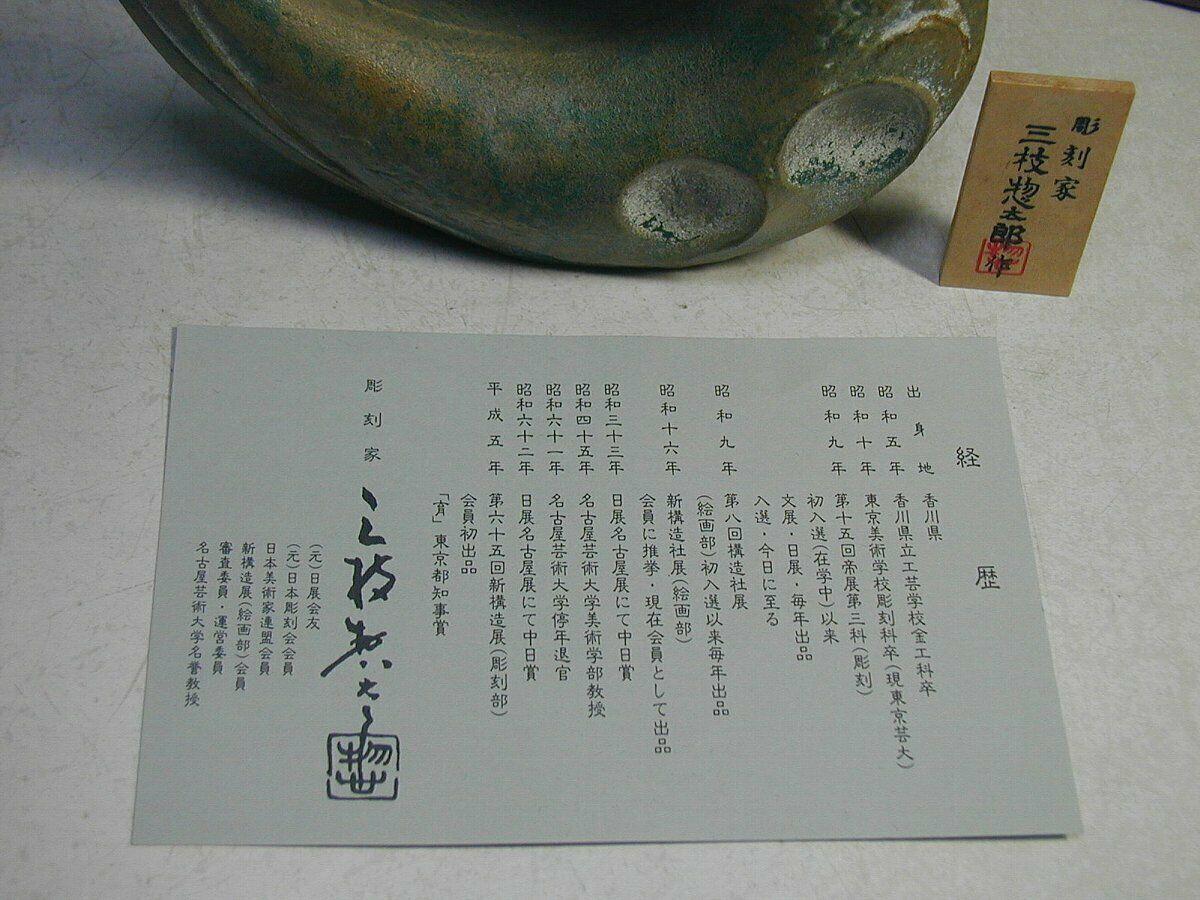 彫刻家
三枝惣太郎
作
経歴
出身地 香川県
昭和五年 香川県立工芸学校金工科卒
昭和十年 東京美術学校彫刻科卒(現東京芸大)
昭和九年 第十五回帝展第三科(彫刻)
初入選(在学中)以来
文展・日展・毎年出品
入選・今日に至る
昭和九年 第八回構造社展
(絵画部)初入選以来毎年出品
昭和十六年 新構造社展(絵画部)
会員に推挙・現在会員として出品
昭和三十三年 日展名古屋展にて中日賞
昭和四十五年 名古屋芸術大学美術学部教授
昭和六十一年 名古屋芸術大学停年退官
昭和六十二年 日展名古屋展にて中日賞
平成五年 第六十五回新構造展(彫刻部)
会員初出品
「育」東京都知事賞
彫刻家 三枝惣太郎
(元)日展会友
(元)日本彫刻会会員
日本美術家連盟会員
新構造展(絵画部)会員
審査委員・運営委員
名古屋芸術大学名誉教授